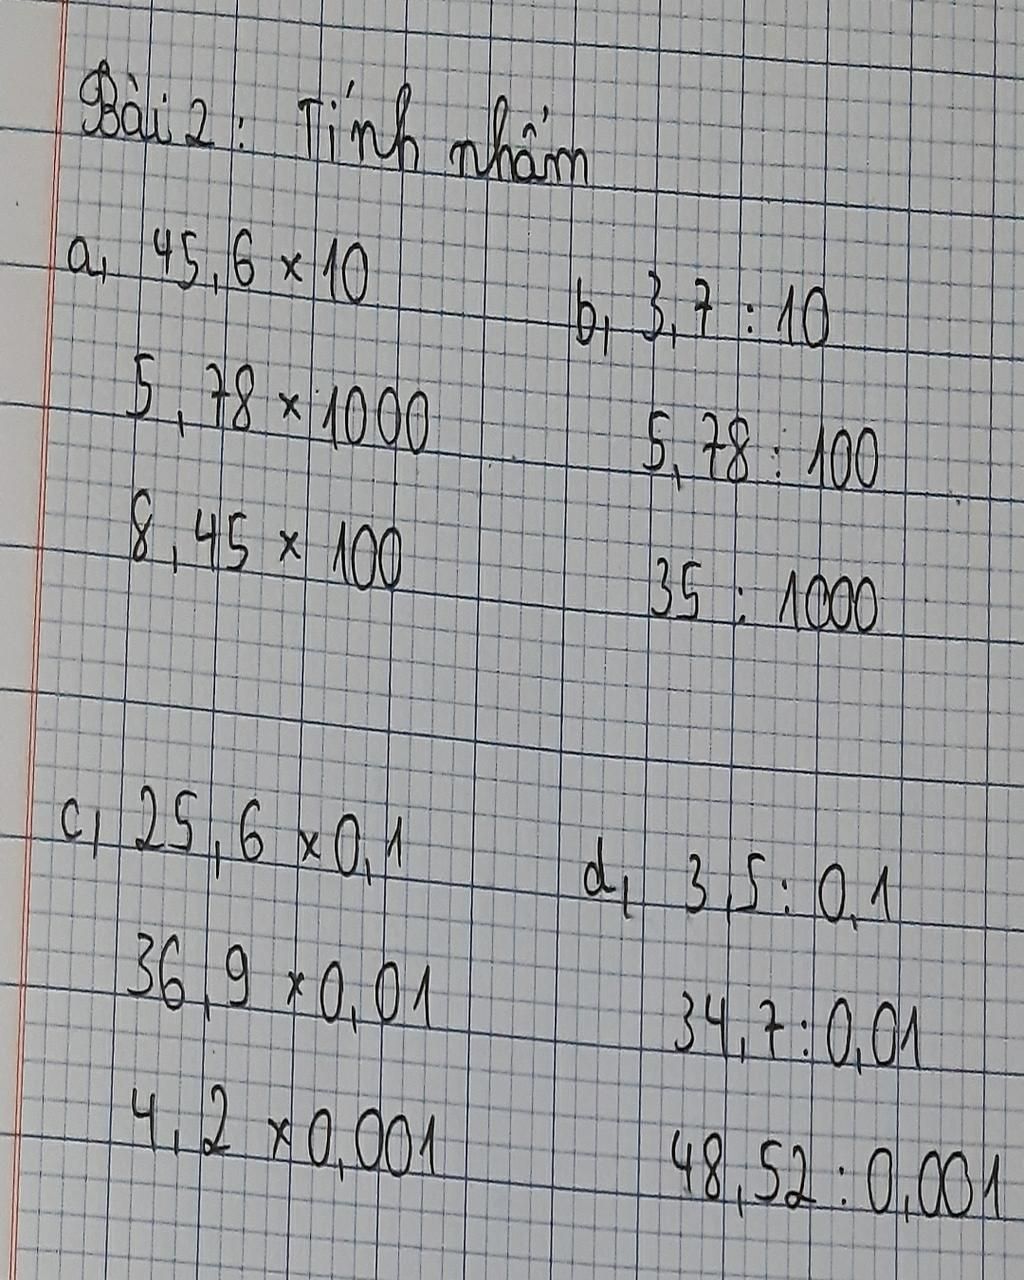 Bài 2: Tính nhẩm
a, 45,6 × 10
b, 3,7 : 10
5,78 × 1000
5,78 : 100
8,45 × 100
35 : 1000
c, 25,6 × 0,1
d, 3,5 : 0,1
36,9 × 0,01
34,7 : 0,01
4,2 × 0,001
48,52 : 0,001